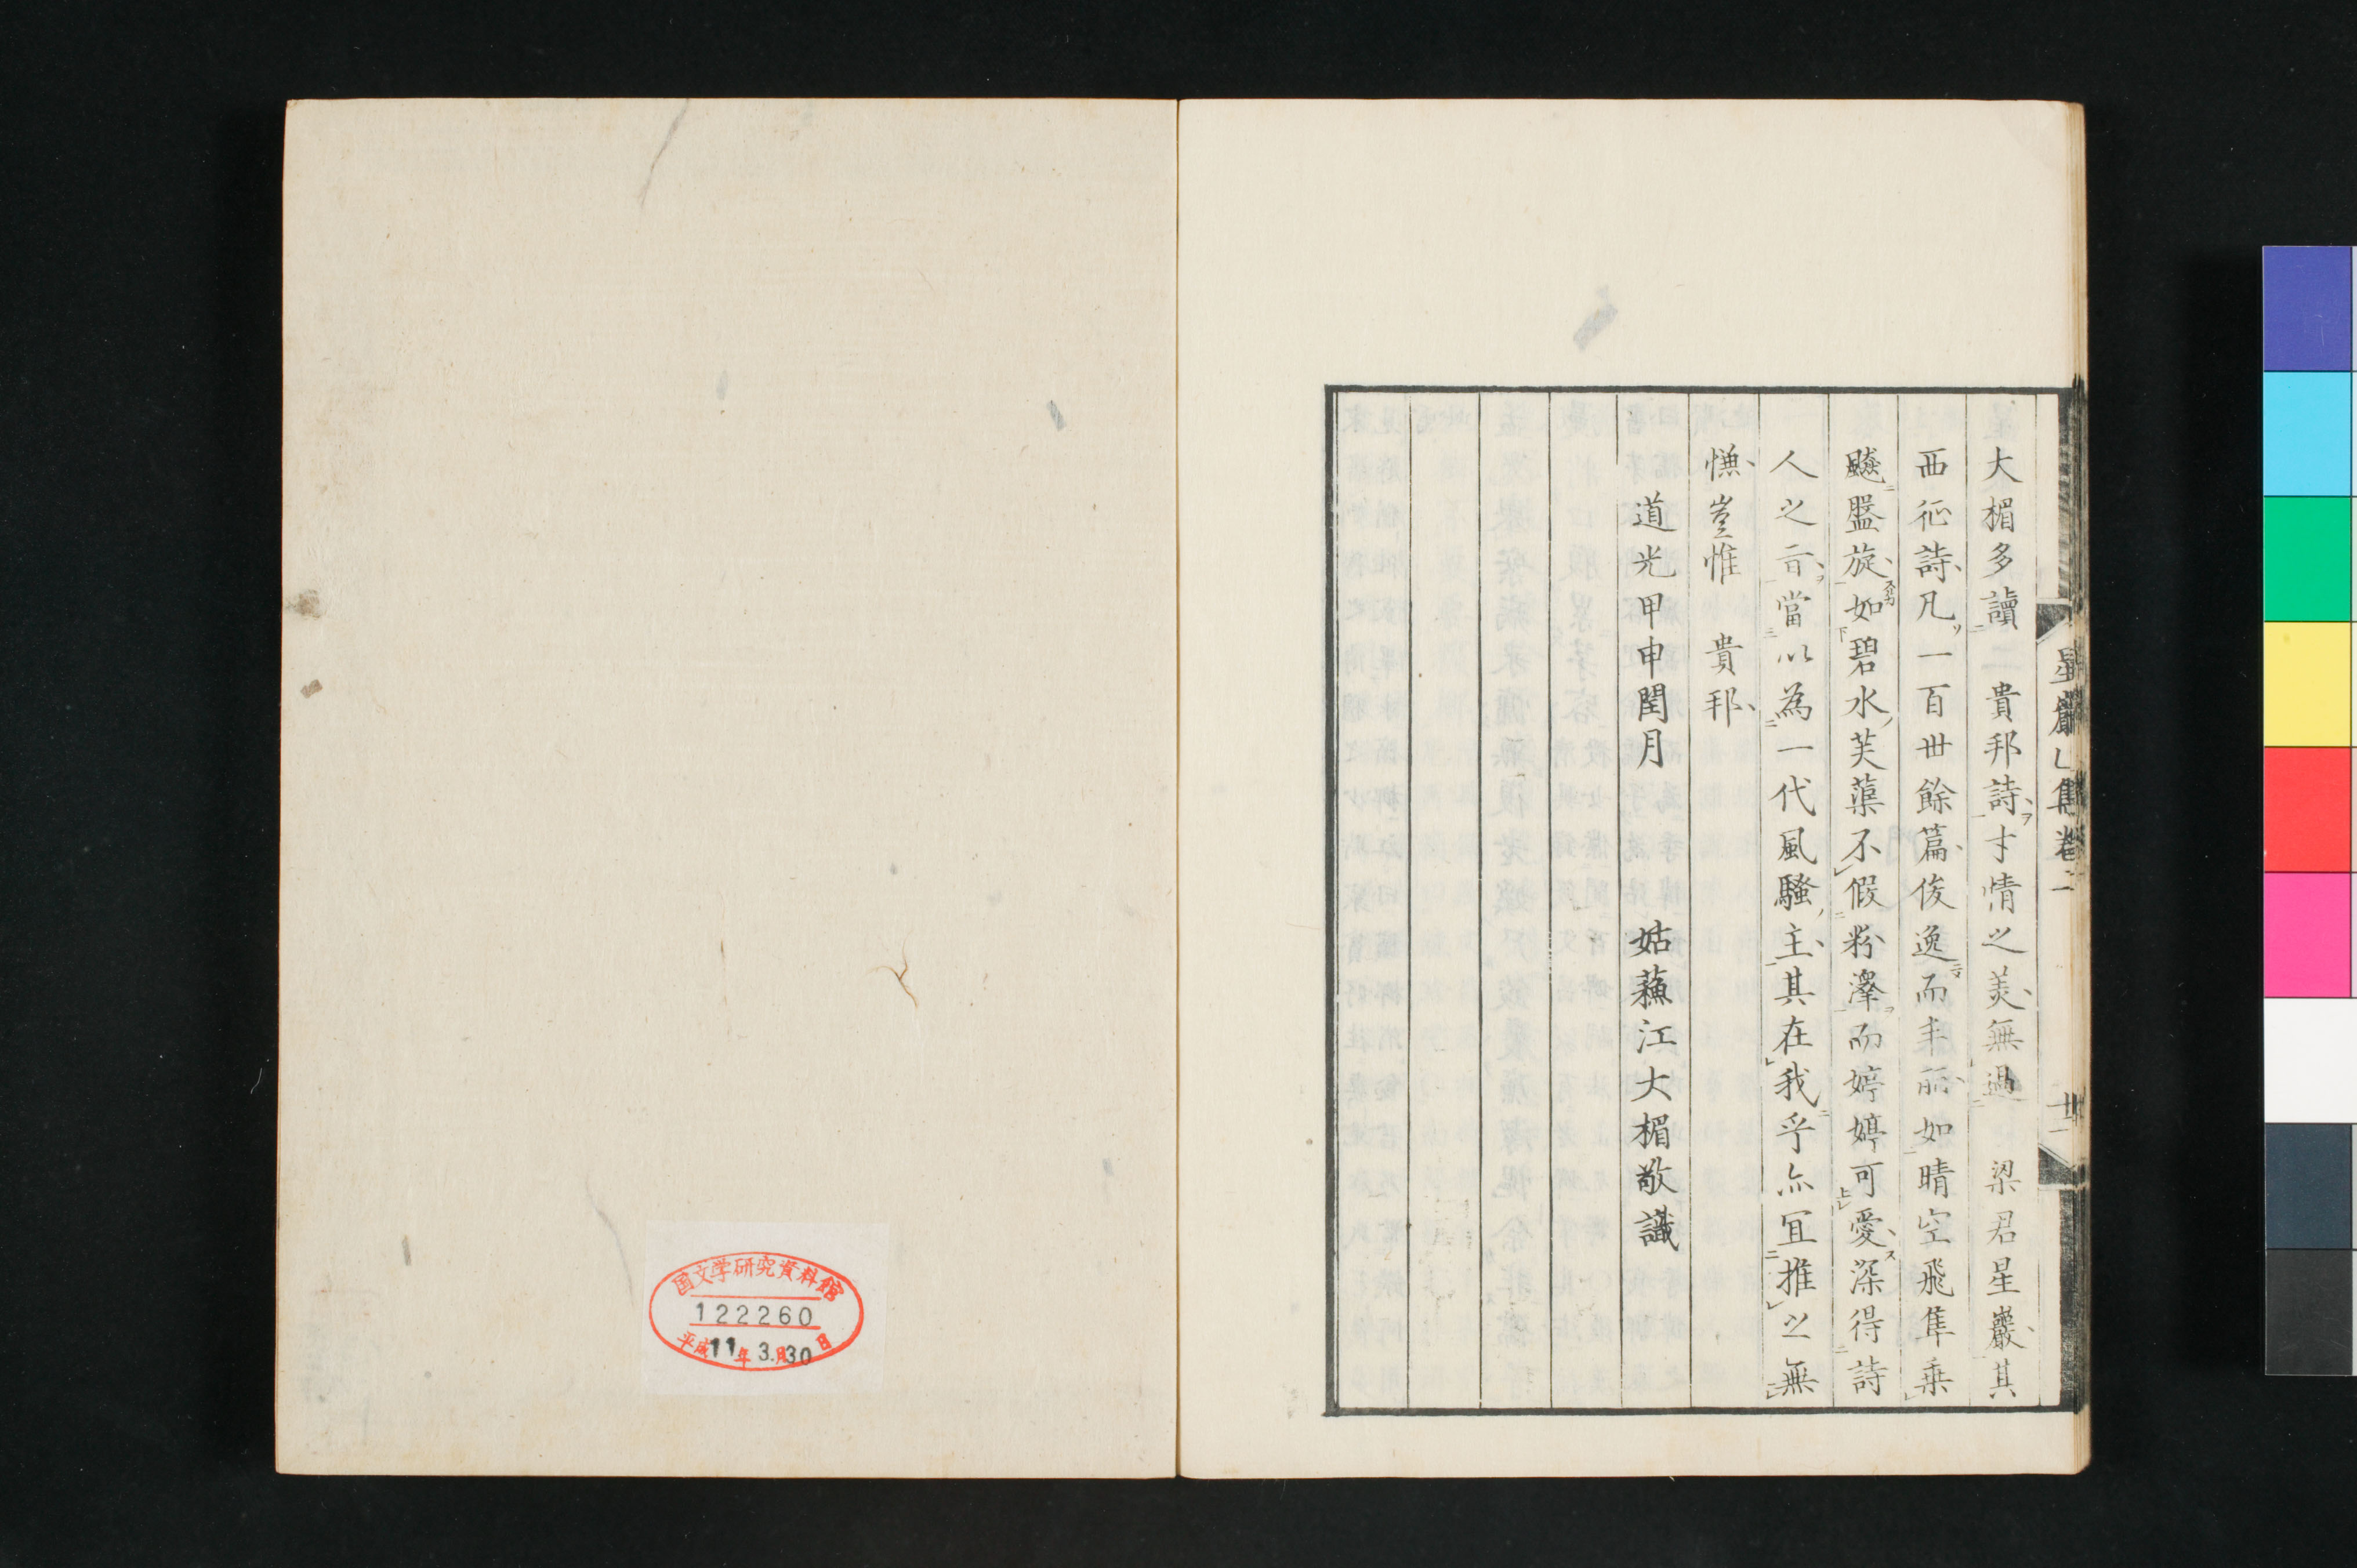 星巖乙集卷二
廿一
大楣多讀貴邦詩才情之美無過梁君星巖其
西征詩凡一百卅餘篇俊逸而丰麗如晴空飛隼乘
飈盤旋如碧水芙蕖不假粉澤而婷婷可愛深得詩
人之旨當以為一代風騷主其在我乎亦宜推之無
慊豈惟貴邦
道光甲申閏月 姑蘓江大楣敬識
国文学研究資料館
122260
平成11年3.月30日